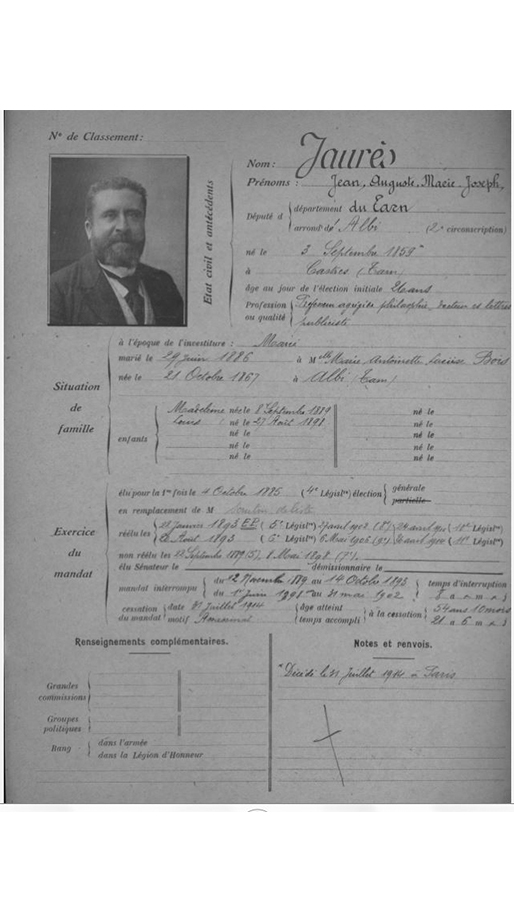 N° de Classement:
Etat civil et antécédents
Nom: Jaurès
Prénoms: Jean, Auguste, Marie, Joseph,
Député d
département du Tarn
arrond.t d' Albi (2e circonscription)
né le 3 Septembre 1859
à Castres (Tarn)
âge au jour de l'élection initiale 26 ans
Profession Professeur agrégé de philosophie, docteur es lettres
ou qualité publiciste
Situation de famille
à l'époque de l'investiture: Marié
marié le 29 juin 1886 à Mlle Marie Antoinette Louise Bois
née le 21 Octobre 1867 à Albi (Tarn)
enfants
Madeleine née le 8 Septembre 1889 né le
Louis né le 27 Août 1898 né le
né le né le
né le né le
né le né le
Exercice du mandat
élu pour la 1re fois le 4 Octobre 1885 (4e Législre) élection générale
partielle
en remplacement de M
réélu les 1893 (5e Législ) 1902 (8e) 24 avril (10e Législ)
Août 1893 (6e Législ) 6 Mai 1906 (9e) (11e Législ)
non réélu les 22 Septembre 1889 (5), 8 Mai 1898 (7e).
élu Sénateur le démissionnaire le
mandat interrompu du 12 Novembre 1889 au 14 Octobre 1893 temps d'interruption
du 1er Juin 1898 au 31 mai 1902 8 a m j
cessation du mandat
date 31 Juillet 1914 âge atteint à la cessation 54 ans 10 mois
motif Assassiné temps accompli 21 a 6 m j
Renseignements complémentaires.
Grandes commissions
Groupes politiques
Rang
dans l'armée
dans la Légion d'Honneur
Notes et renvois.
* Décédé le 31 Juillet 1914 à Paris